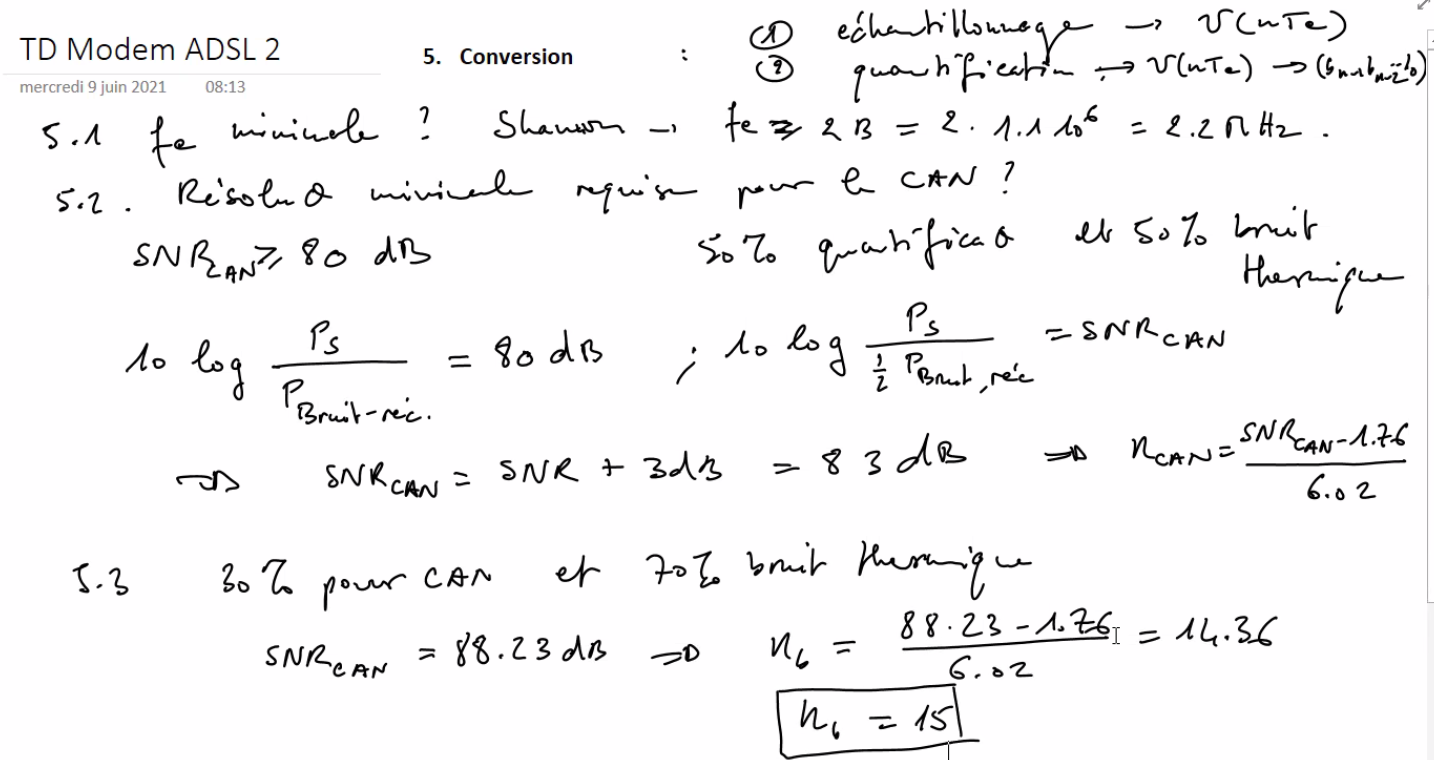 TD Modem ADSL 2
mercredi 9 juin 2021 08:13
5. Conversion :
① échantillonnage → v(nTe)
② quantification → v(nTe) → (bn-1bn-2..b0)
5.1 fe minimale ? Shannon → fe ≥ 2B = 2. 1.1 10⁶ = 2.2 MHz.
5.2. Résolu0 minimale requise pour le CAN ?
SNR_CAN ≥ 80 dB 50% quantifica0 et 50% bruit
thermique
10 log P_s / P_Bruit-réc. = 80 dB ; 10 log P_s / ½ P_Bruit,réc = SNR_CAN
⇒ SNR_CAN = SNR + 3dB = 83 dB ⇒ n_CAN = SNR_CAN - 1.76 / 6.02
5.3 30% pour CAN et 70% bruit thermique
SNR_CAN = 88.23 dB ⇒ n_b = 88.23 - 1.76 / 6.02 = 14.36
n_b = 15